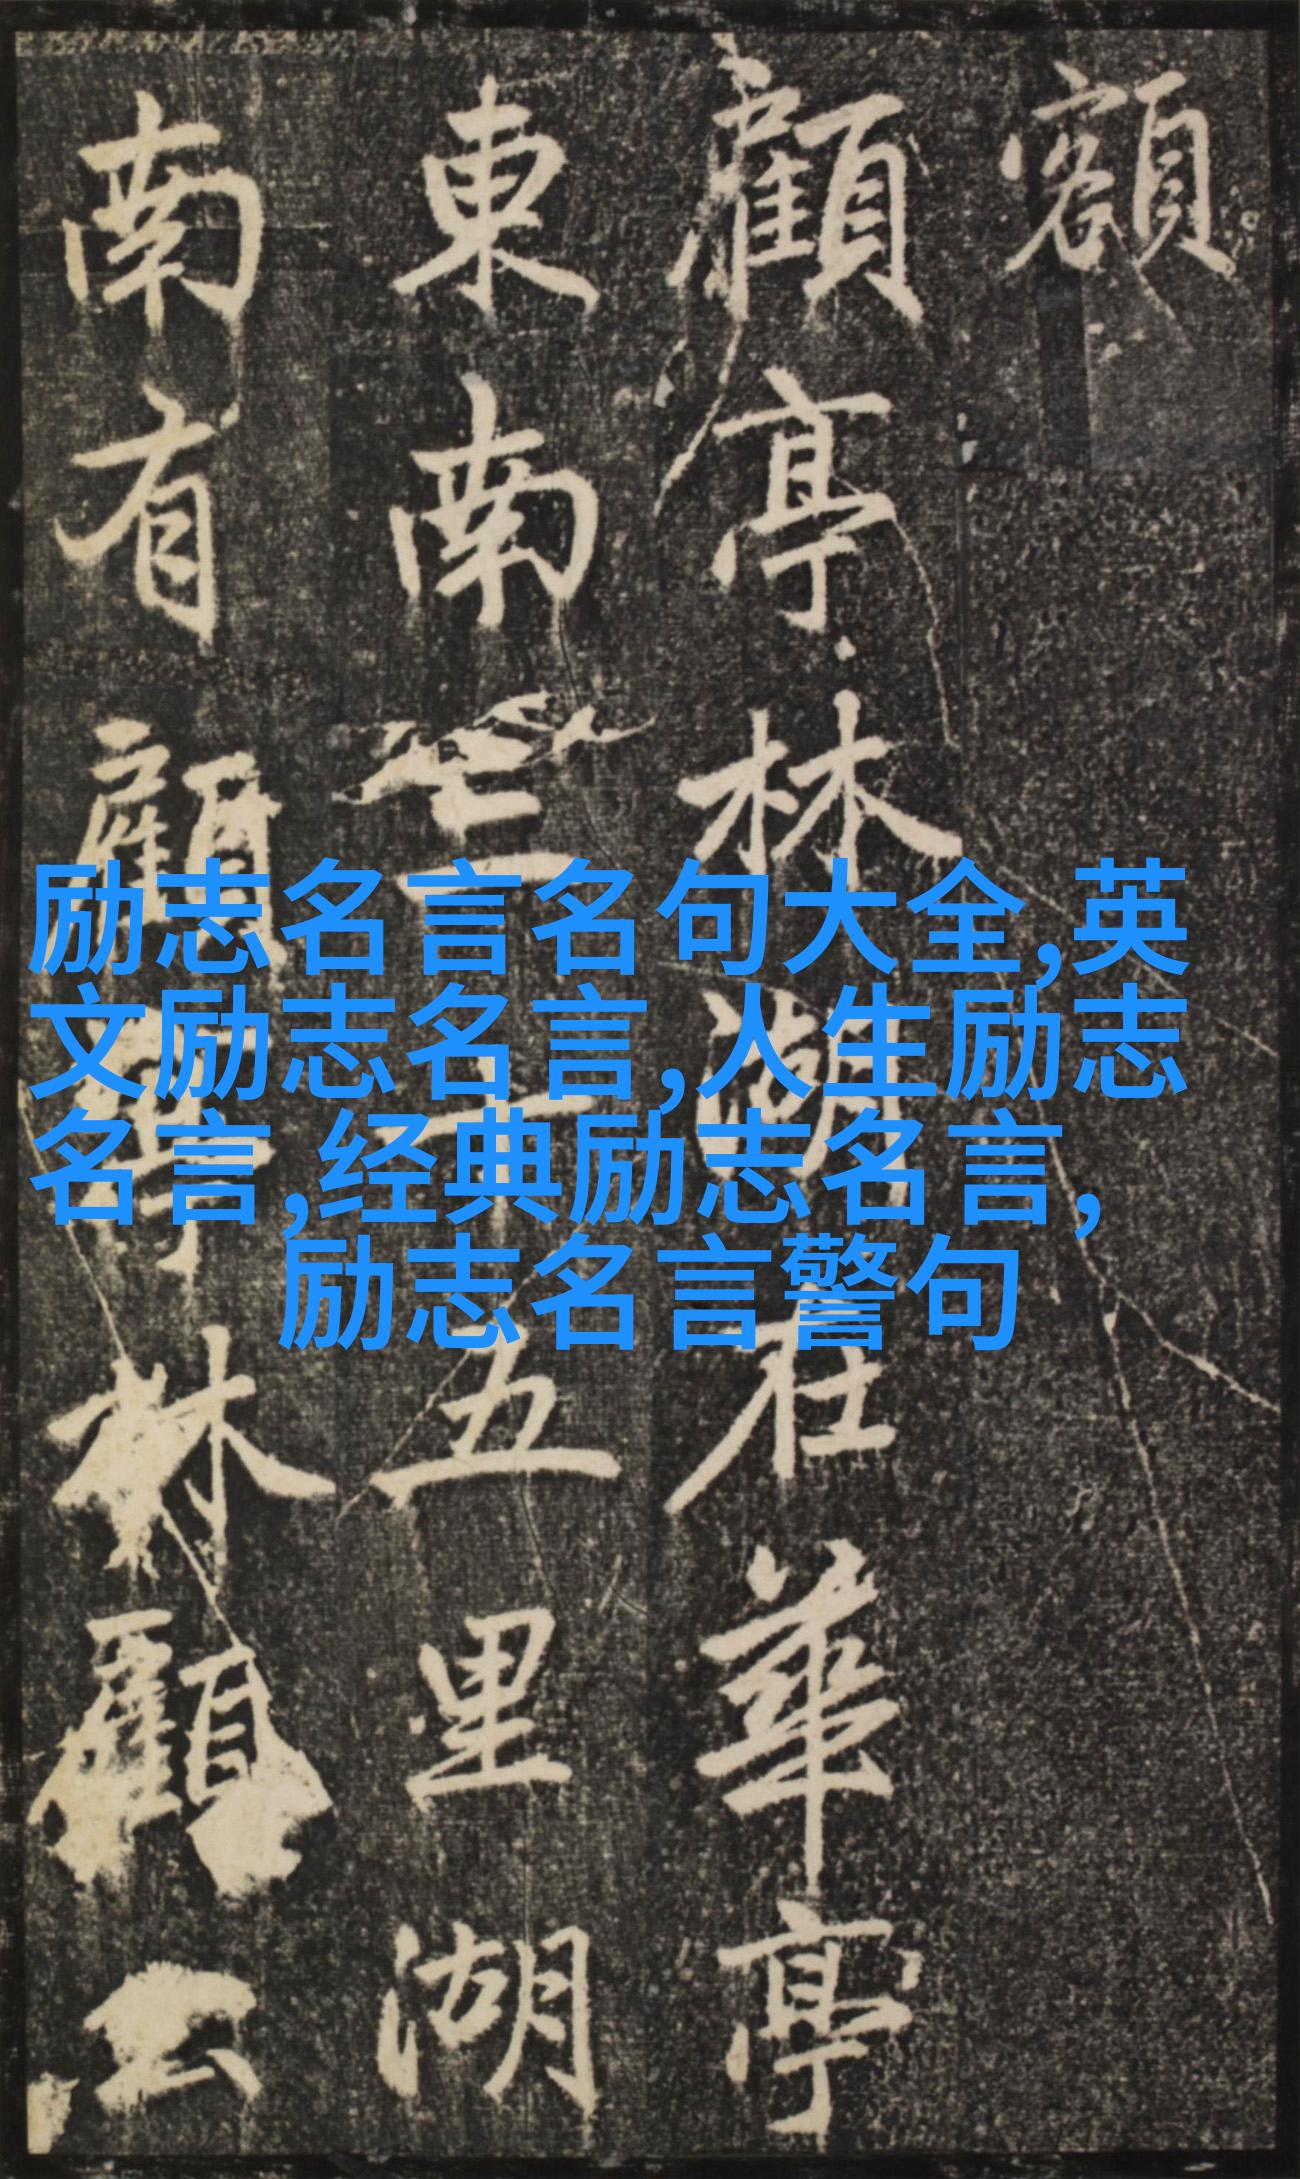 額
顧亭林湖在華亭
東南三十五里湖
南有顧
林顧
公
励志名言名句大全,英
文励志名言,人生励志
名言,经典励志名言,
励志名言警句